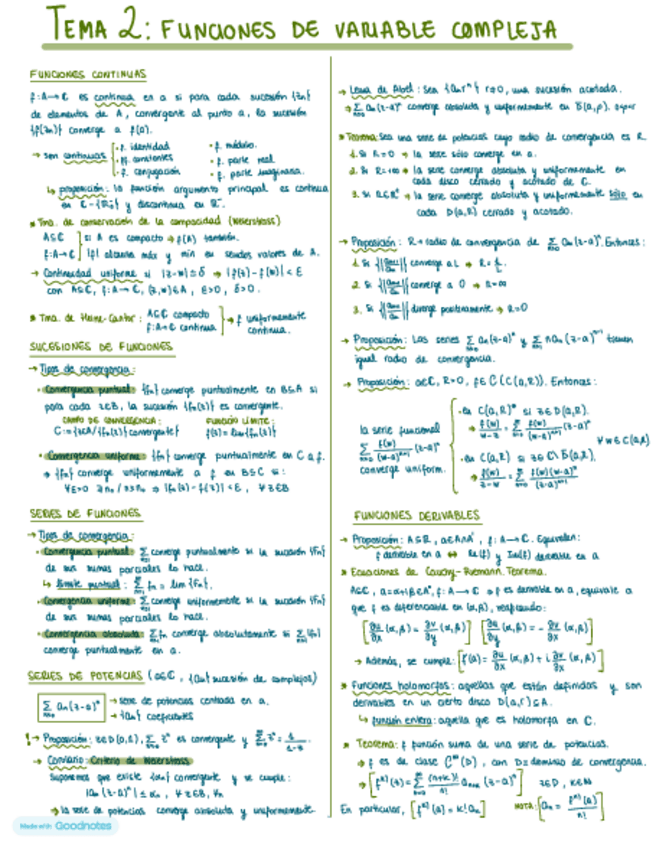 TEMA 2: FUNCIONES DE VARIABLE COMPLEJA
FUNCIONES CONTINUAS
f: A → ℂ es continua en a si para cada sucesión {zn}
de elementos de A, convergente al punto a, la sucesión
{f(zn)} converge a f(a).
→ son continuas
· f. identidad · f. módulo.
· ff. constantes · f. parte real
· f. conjugación · f. parte imaginaria.
↳ proposición: la función argumento principal es continua
en ℂ-{ℝ₀⁻} y discontinua en ℝ⁻.
* Tma. de conservación de la compacidad (Weierstrass)
A⊆ℂ | si A es compacto → f(A) también.
f: A → ℂ | |f| alcanza máx y mín en sendos valores de A.
→ Continuidad uniforme si |z-w| ≤ δ → |f(z) - f(w)| < ε
con A⊆ℂ, f: A → ℂ, (z,w)∈A, ε>0, δ>0.
* Tma. de Heine-Cantor: A⊆ℂ compacto
f: A → ℂ continua
→ f uniformemente
continua.
SUCESIONES DE FUNCIONES
→ Tipos de convergencia:
· Convergencia puntual: {fn} converge puntualmente en B⊆A si
para cada z∈B, la sucesión {fn(z)} es convergente.
CAMPO DE CONVERGENCIA: FUNCIÓN LÍMITE:
C := {z∈A / {fn(z)} convergente} f(z) = lim {fn(z)}
· Convergencia uniforme: {fn} converge puntualmente en C a f.
→ {fn} converge uniformemente a f en B⊆C si:
∀ε>0 ∃n₀ / n≥n₀ → |fn(z) - f(z)| < ε, ∀z∈B
SERIES DE FUNCIONES
→ Tipos de convergencia:
· Convergencia puntual: Σ converge puntualmente si la sucesión {Fn}
de sus sumas parciales lo hace.
↳ límite puntual: Σ fn = lim {Fn}.
· Convergencia uniforme: Σ converge uniformemente si la sucesión {Fn}
de sus sumas parciales lo hace.
· Convergencia absoluta: Σ fn converge absolutamente si Σ|fn|
converge puntualmente en a.
SERIES DE POTENCIAS (a∈ℂ, {an} sucesión de complejos)
Σ an(z-a)ⁿ → serie de potencias centrada en a.
n≥0 → {an} coeficientes
! → Proposición: z∈D(0,1), Σ zⁿ es convergente y Σ zⁿ = 1/(1-z)
→ Corolario: Criterio de Weierstrass
Suponemos que existe convergente y se cumple:
|an (z-a)ⁿ| ≤ αn, ∀z∈B, ∀n
→ la serie de potencias converge absoluta y uniformemente.
→ Lema de Abel: Sea {an rⁿ} r≠0, una sucesión acotada.
→ Σ an(z-a)ⁿ converge absoluta y uniformemente en D̄(a,ρ).
* Teorema: Sea una serie de potencias cuyo radio de convergencia es R
1. Si R=0 → la serie sólo converge en a.
2. Si R=∞ → la serie converge absoluta y uniformemente en
cada disco cerrado y acotado de ℂ.
3. Si R∈ℝ⁺ → la serie converge absoluta y uniformemente sólo en
cada D(a,R) cerrado y acotado.
→ Proposición: R = radio de convergencia de Σ an(z-a)ⁿ. Entonces:
1. Si {|an+1/an|} converge a L → R = 1/L.
2. Si {|an+1/an|} converge a 0 → R=∞
3. Si {|an+1/an|} diverge positivamente → R=0
→ Proposición: Las series Σ an(z-a)ⁿ y Σ n an(z-a)ⁿ⁻¹ tienen
igual radio de convergencia.
→ Proposición: a∈ℂ, R>0, f∈C(C(a,R)). Entonces:
la serie funcional
Σ f(w)/(w-a)ⁿ⁺¹ (z-a)ⁿ
converge uniform.
· en C(a,R)* si z∈D(a,R).
→ f(w)/(w-z) = Σ f(w)/(w-a)ⁿ⁺¹ (z-a)ⁿ
∀w∈C(a,R)
· en C(a,R) si z∈ℂ\D̄(a,R).
→ f(w)/(z-w) = Σ f(w)(w-a)ⁿ/(z-a)ⁿ⁺¹
FUNCIONES DERIVABLES
→ Proposición: A⊆ℝ, a∈A∩A', f: A → ℂ. Equivalen:
f derivable en a ↔ Re(f) y Im(f) derivable en a
* Ecuaciones de Cauchy-Riemann. Teorema.
A⊆ℂ, a=α+iβ∈A°, f: A → ℂ → f es derivable en a, equivale a
que f es diferenciable en (α,β), verificando:
[∂u/∂x (α,β) = ∂v/∂y (α,β)] [∂u/∂y (α,β) = - ∂v/∂x (α,β)]
→ Además, se cumple: [f'(a) = ∂u/∂x (α,β) + i ∂v/∂x (α,β)]
* Funciones holomorfas: aquellas que están definidas y son
derivables en un cierto disco D(a,r)⊆A.
↳ función entera: aquella que es holomorfa en ℂ.
* Teorema: f función suma de una serie de potencias.
→ f es de clase C^∞(D), con D=dominio de convergencia.
→ [f^(k)(z) = Σ (n+k)!/n! an+k (z-a)ⁿ] z∈D, k∈ℕ
En particular, [f^(k)(a) = k! ak] NOTA: [an = f^(n)(a)/n!]
Made with Goodnotes